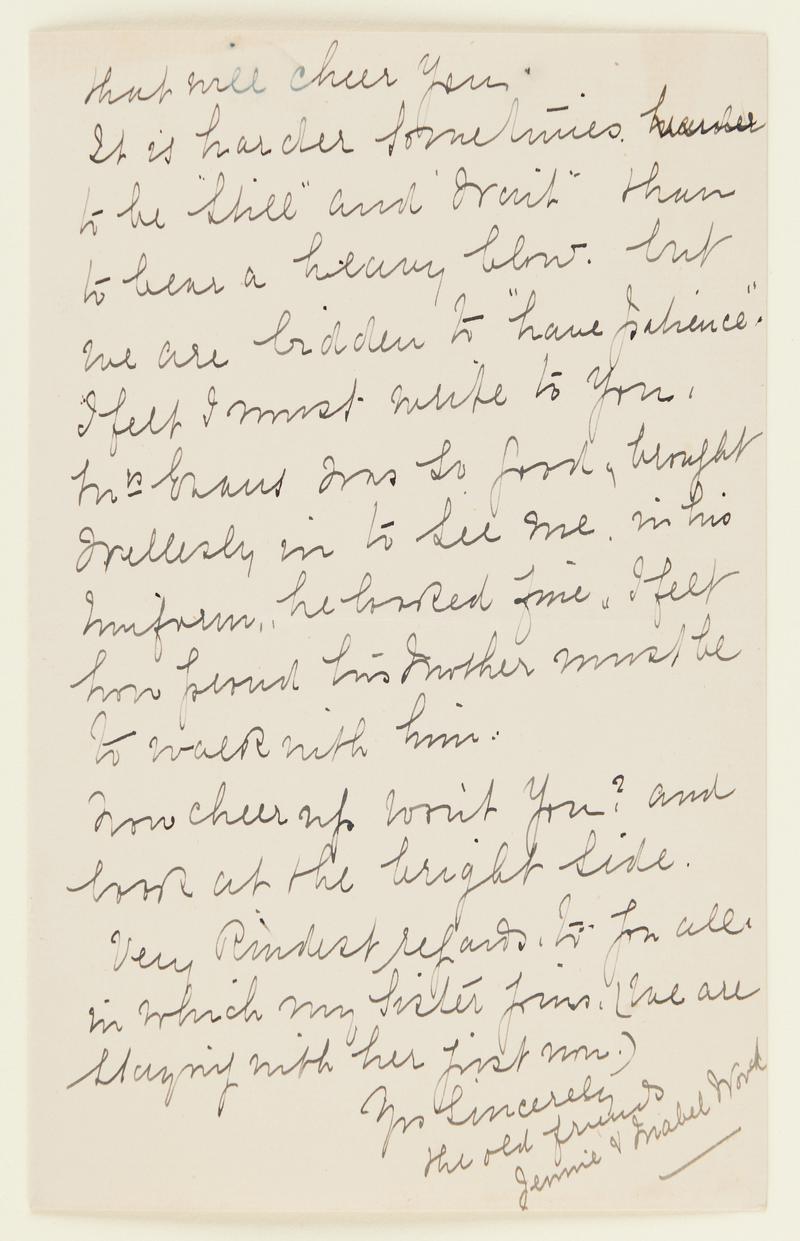 that will cheer you.
It is harder sometimes.
to be "Still" and "Wait" than
to bear a heavy blow. but
we are bidden to "have patience".
I felt I must write to you.
Mrs Evans was so good, brought
Wellesly in to see me. in his
Uniform,, he looked fine,, I felt
how proud his Mother must be
to walk with him.
Now cheer up won't you? and
look at the bright side.
Very kindest regards. to you all.
in which my Sister joins. (We are
staying with her just now.)
Yrs Sincerely
the old friends
Jennie & Mabel